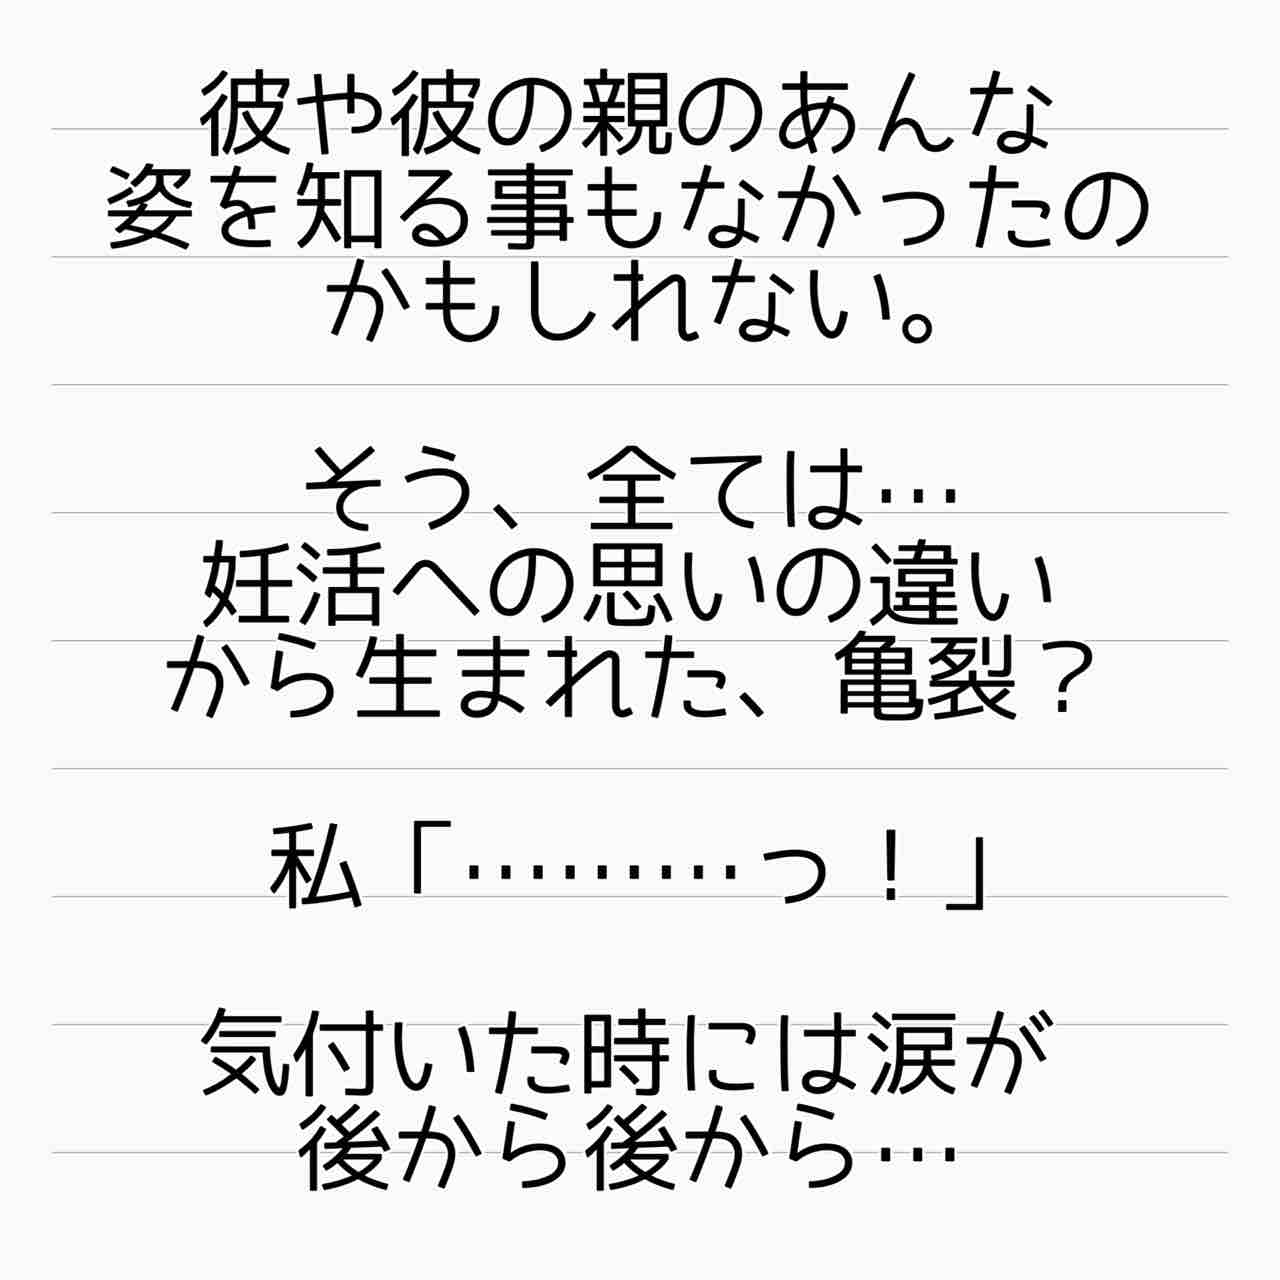 彼や彼の親のあんな
姿を知る事もなかったの
かもしれない。
そう、全ては…
妊活への思いの違い
から生まれた、亀裂？
私「………っ！」
気付いた時には涙が
後から後から…